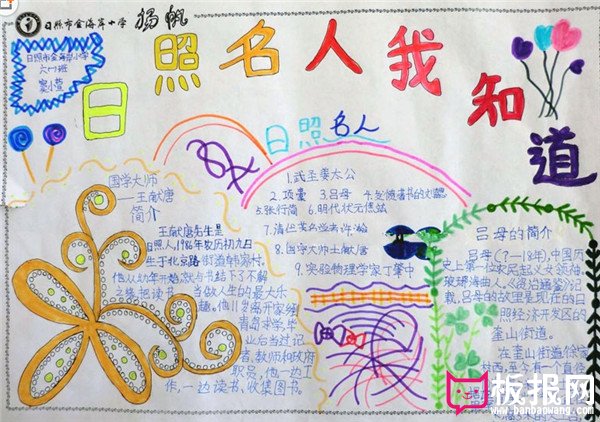 日照市金海岸小学
扬帆
日照市金海岸小学
六一班
窦小萱
日照名人我知道
日照名人
1.武圣姜太公
2.项橐 3.吕母
5.张行简 6.明代状元焦竑
8.国学大师王献唐
9.实验物理学家丁肇中
国学大师
——王献唐
简介
王献唐先生是
日照人,1896年农历初九日
生于北京路街道韩家村,
他从幼年开始就与书结下了不解
之缘,把读书
当做人生的最大乐
趣。他11岁离开家乡到
青岛求学,毕
业后当过记
者,教师和政府
职员,他一边工
作,一边读书,收集图书。
吕母的简介
吕母(?—18年),中国历
史上第一位农民起义女领袖,
琅琊海曲人。《资治通鉴》记
载,吕母的故里是现在的日
照经济开发区的
奎山街道。
在奎山街道徐家
村西,至今有一个直径
板报网
www.banbaowang.com